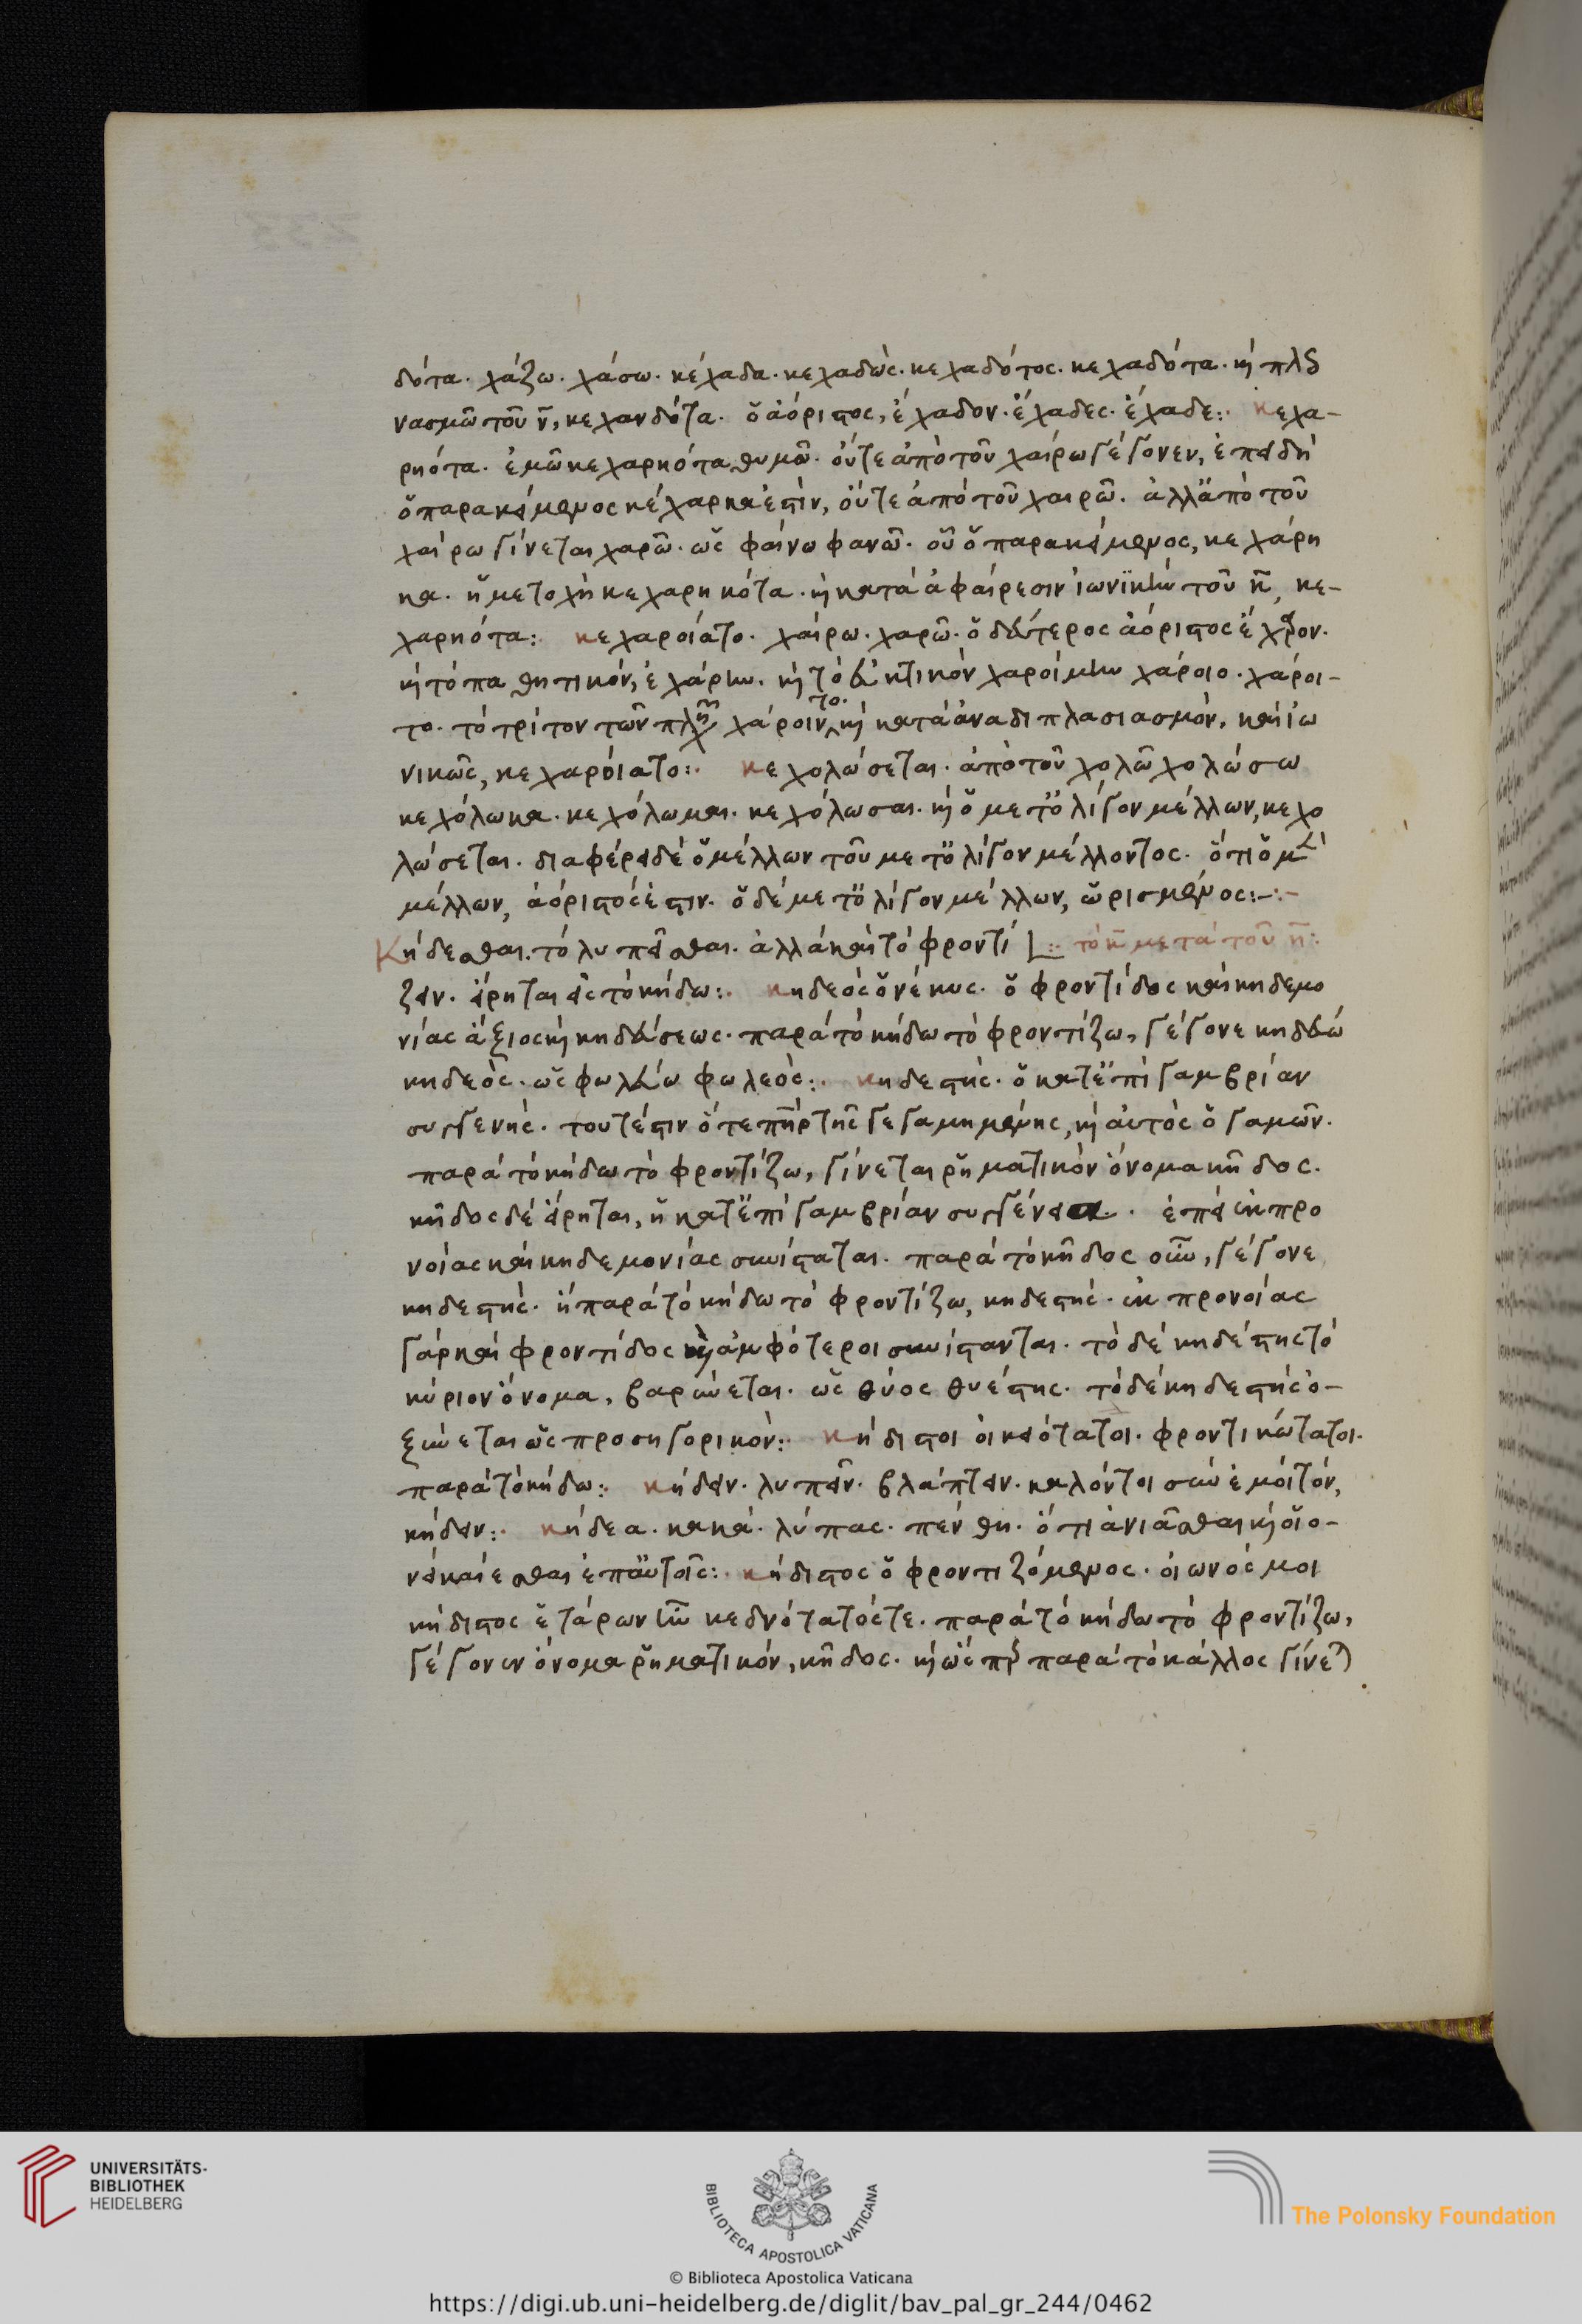 δότα. χάζω. χάσω. κέχαδα. κεχαδὼς. κεχαδότος. κεχαδότα. κὴ πλς
νασμῶ τοῦ ν̄, κεχανδότα. ὁ ἀόριστος, ἔχαδον. ἔχαδες. ἔχαδε:. κεχα-
ρηότα. ἐμῶ κεχαρηότα θυμῶ. οὔτε ἀπὸ τοῦ χαίρω γέγονεν, ἐπειδὴ
ὁ παρακείμενος κέχαρκα ἐστὶν, οὔτε ἀπὸ τοῦ χαιρῶ. ἀλλ' ἀπὸ τοῦ
χαίρω γίνεται χαρῶ. ὡς φαίνω φανῶ. οὗ ὁ παρακείμενος, κεχάρη
κα. ἡ μετοχὴ κεχαρηκότα. κὴ κατὰ ἀφαίρεσιν ἰωνϊκὴν τοῦ κ̄, κε-
χαρηότα:. κεχαροίατο. χαίρω. χαρῶ. ὁ δεύτερος ἀόριστος ἔχαρον.
κὴ τὸ παθητικόν, ἐχάρην. κὴ τὸ εὐκτικὸν χαροίμην χάροιο. χάροι-
το. τὸ τρίτον τῶν πλη χάροιντο. κὴ κατὰ ἀναδιπλασιασμόν, καὶ ἰω
νικῶς, κεχαροίατο:. κεχολώσεται. ἀπὸ τοῦ χολῶ χολώσω
κεχόλωκα. κεχόλωμαι. κεχόλωσαι. κὴ ὁ μετ' ὀλίγον μέλλων, κεχο
λώσεται. διαφέρει δὲ ὁ μέλλων τοῦ μετ' ὀλίγον μέλλοντος. ὅτι ὁ μὲν
μέλλων, ἀόριστός ἐστιν. ὁ δὲ μετ' ὀλίγον μέλλων, ὡρισμένος:-:-
Κήδεσθαι. τὸ λυπεῖσθαι. ἀλλὰ καὶ τὸ φροντί :. τὸ κ̄ μετὰ τοῦ η̄:
ζειν. εἴρηται εἰς τὸ κήδω:. κηδεὸς ὁ νέκυς. ὁ φροντίδος καὶ κηδεμο
νίας ἄξιος κὴ κηδεύσεως. παρὰ τὸ κήδω τὸ φροντίζω, γέγονε κηδεύω
κηδεὸς. ὡς φωλεύω φωλεὸς:. κηδεστὴς. ὁ κατ' ἐπιγαμβρίαν
συγγενὴς. τουτέστιν ὅ τε πὴρ τῆς γεγαμημένης, κὴ αὐτὸς ὁ γαμῶν.
παρὰ τὸ κήδω τὸ φροντίζω, γίνεται ῥηματικὸν ὄνομα κῆδος.
κῆδος δὲ εἴρηται, ἡ κατ' ἐπιγαμβρίαν συγγένεια. ἐπεὶ ἐκ προ
νοίας καὶ κηδεμονίας συνίσταται. παρὰ τὸ κῆδος οὖν, γέγονε
κηδεστὴς. ἢ παρὰ τὸ κήδω τὸ φροντίζω, κηδεστὴς. ἐκ προνοίας
γὰρ καὶ φροντίδος κὴ ἀμφότεροι συνίστανται. τὸ δὲ κηδέστης τὸ
κύριον ὄνομα, βαρύνεται. ὡς θύος θυέστης. τὸ δὲ κηδεστὴς ὀ-
ξύνεται ὡς προσηγορικὸν:. κήδιστοι οἰκειότατοι. φροντικώτατοι.
παρὰ τὸ κήδω:. κήδειν. λυπεῖν. βλάπτειν. καλόν τοι σὺν ἐμοὶ τόν,
κήδειν:. κήδεα. κακὰ. λύπας. πένθη. ὅτι ἀνιᾶσθαι κὴ οἰο-
νεὶ καίεσθαι ἐπ' αὐτοῖς:. κήδιστος ὁ φροντιζόμενος. οἰωνός μοι
κήδιστος ἑτάρων ἦν κεδνότατός τε. παρὰ τὸ κήδω τὸ φροντίζω,
γέγονεν ὄνομα ῥηματικόν, κῆδος. κὴ ὥσπερ παρὰ τὸ κάλλος γίνε
UNIVERSITÄTS-
BIBLIOTHEK
HEIDELBERG
BIBLIOTECA APOSTOLICA VATICANA
The Polonsky Foundation
© Biblioteca Apostolica Vaticana
https://digi.ub.uni-heidelberg.de/diglit/bav_pal_gr_244/0462